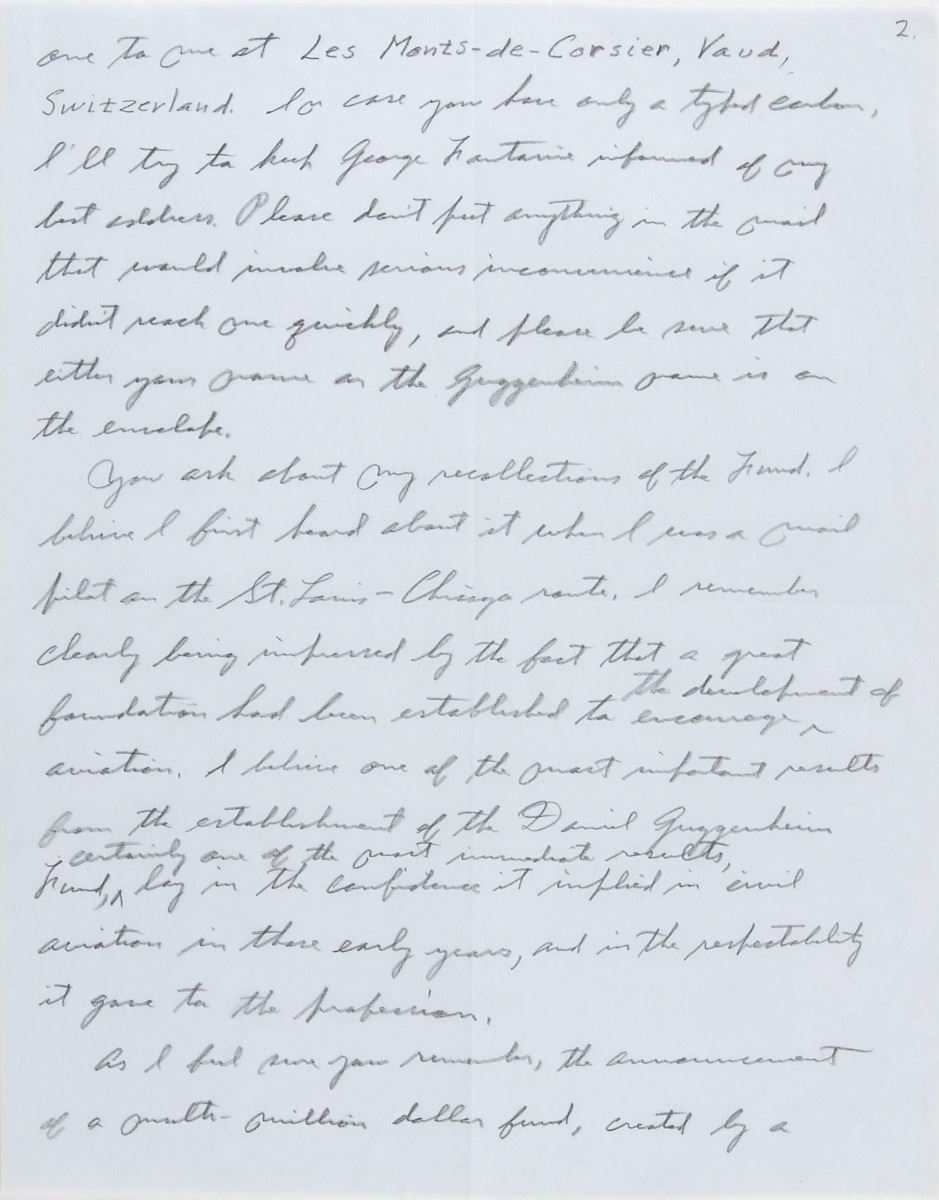 2.
one to me at Les Monts-de-Corsier, Vaud,
Switzerland. In case you have only a typed carbon,
I'll try to keep George Fontaine informed of my
best address. Please don't put anything in the mail
that would involve serious inconvenience if it
didn't reach me quickly, and please be sure that
either your name or the Guggenheim name is on
the envelope.
You ask about my recollections of the Fund. I
believe I first heard about it when I was a mail
pilot on the St. Louis-Chicago route. I remember
clearly being impressed by the fact that a great
the development of
foundation had been established to encourage ^
aviation. I believe one of the most important results
from the establishment of the Daniel Guggenheim
certainly one of the most immediate results,
Fund, ^ lay in the confidence it implied in civil
aviation in those early years, and in the respectability
it gave to the profession.
As I feel sure you remember, the announcement
of a multi-million dollar fund, created by a